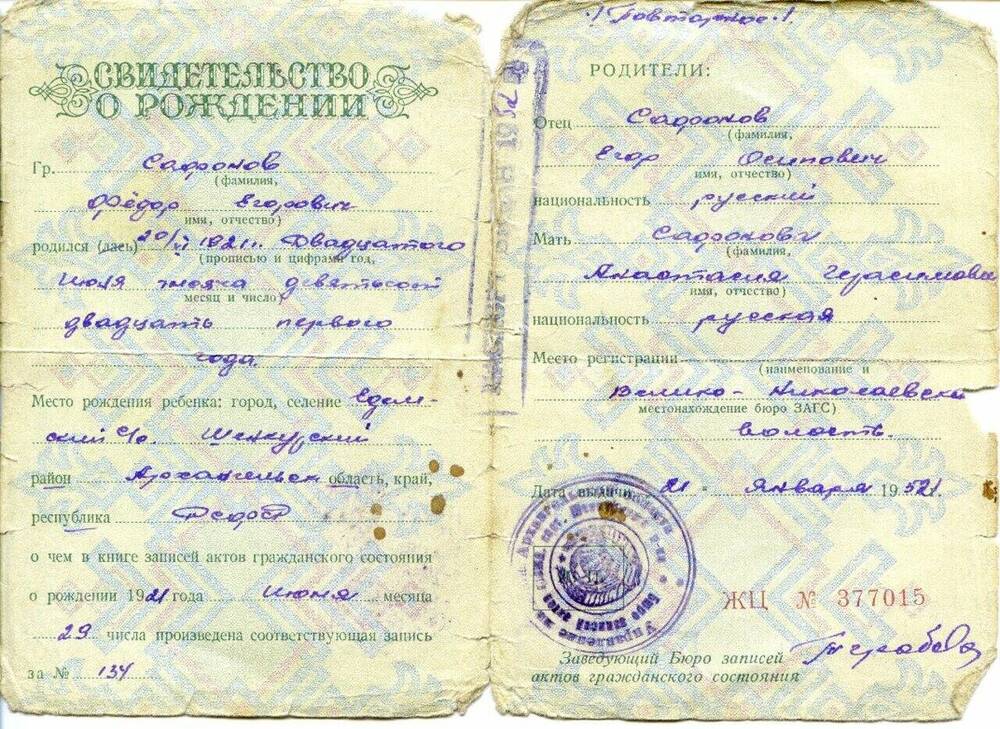 СВИДЕТЕЛЬСТВО
О РОЖДЕНИИ
Гр. Сафронов
(фамилия,
Фёдор Егорович
имя, отчество)
родился (лась) 20/VI 1921г. Двадцатого
(прописью и цифрами год,
июля тысяча девятьсот
месяц и число)
двадцать первого
года.
Место рождения ребенка: город, селение Едем-
ский с/с. Шенкурский
район Архангельск область, край,
республика РСФСР
о чем в книге записей актов гражданского состояния
о рождении 1921 года июня месяца
29 числа произведена соответствующая запись
за № 134
! Повторное !
РОДИТЕЛИ:
Отец Сафронов
(фамилия,
Егор Осипович
имя, отчество)
национальность русский
Мать Сафронова
(фамилия,
Анастасия Герасимовн
имя, отчество)
национальность русская
Место регистрации
(наименование и
Велико-Николаевска
местонахождение бюро ЗАГС)
волость.
Дата выдачи 21 " января 1952г.
ЖЦ № 377015
Заведующий Бюро записей
актов гражданского состояния